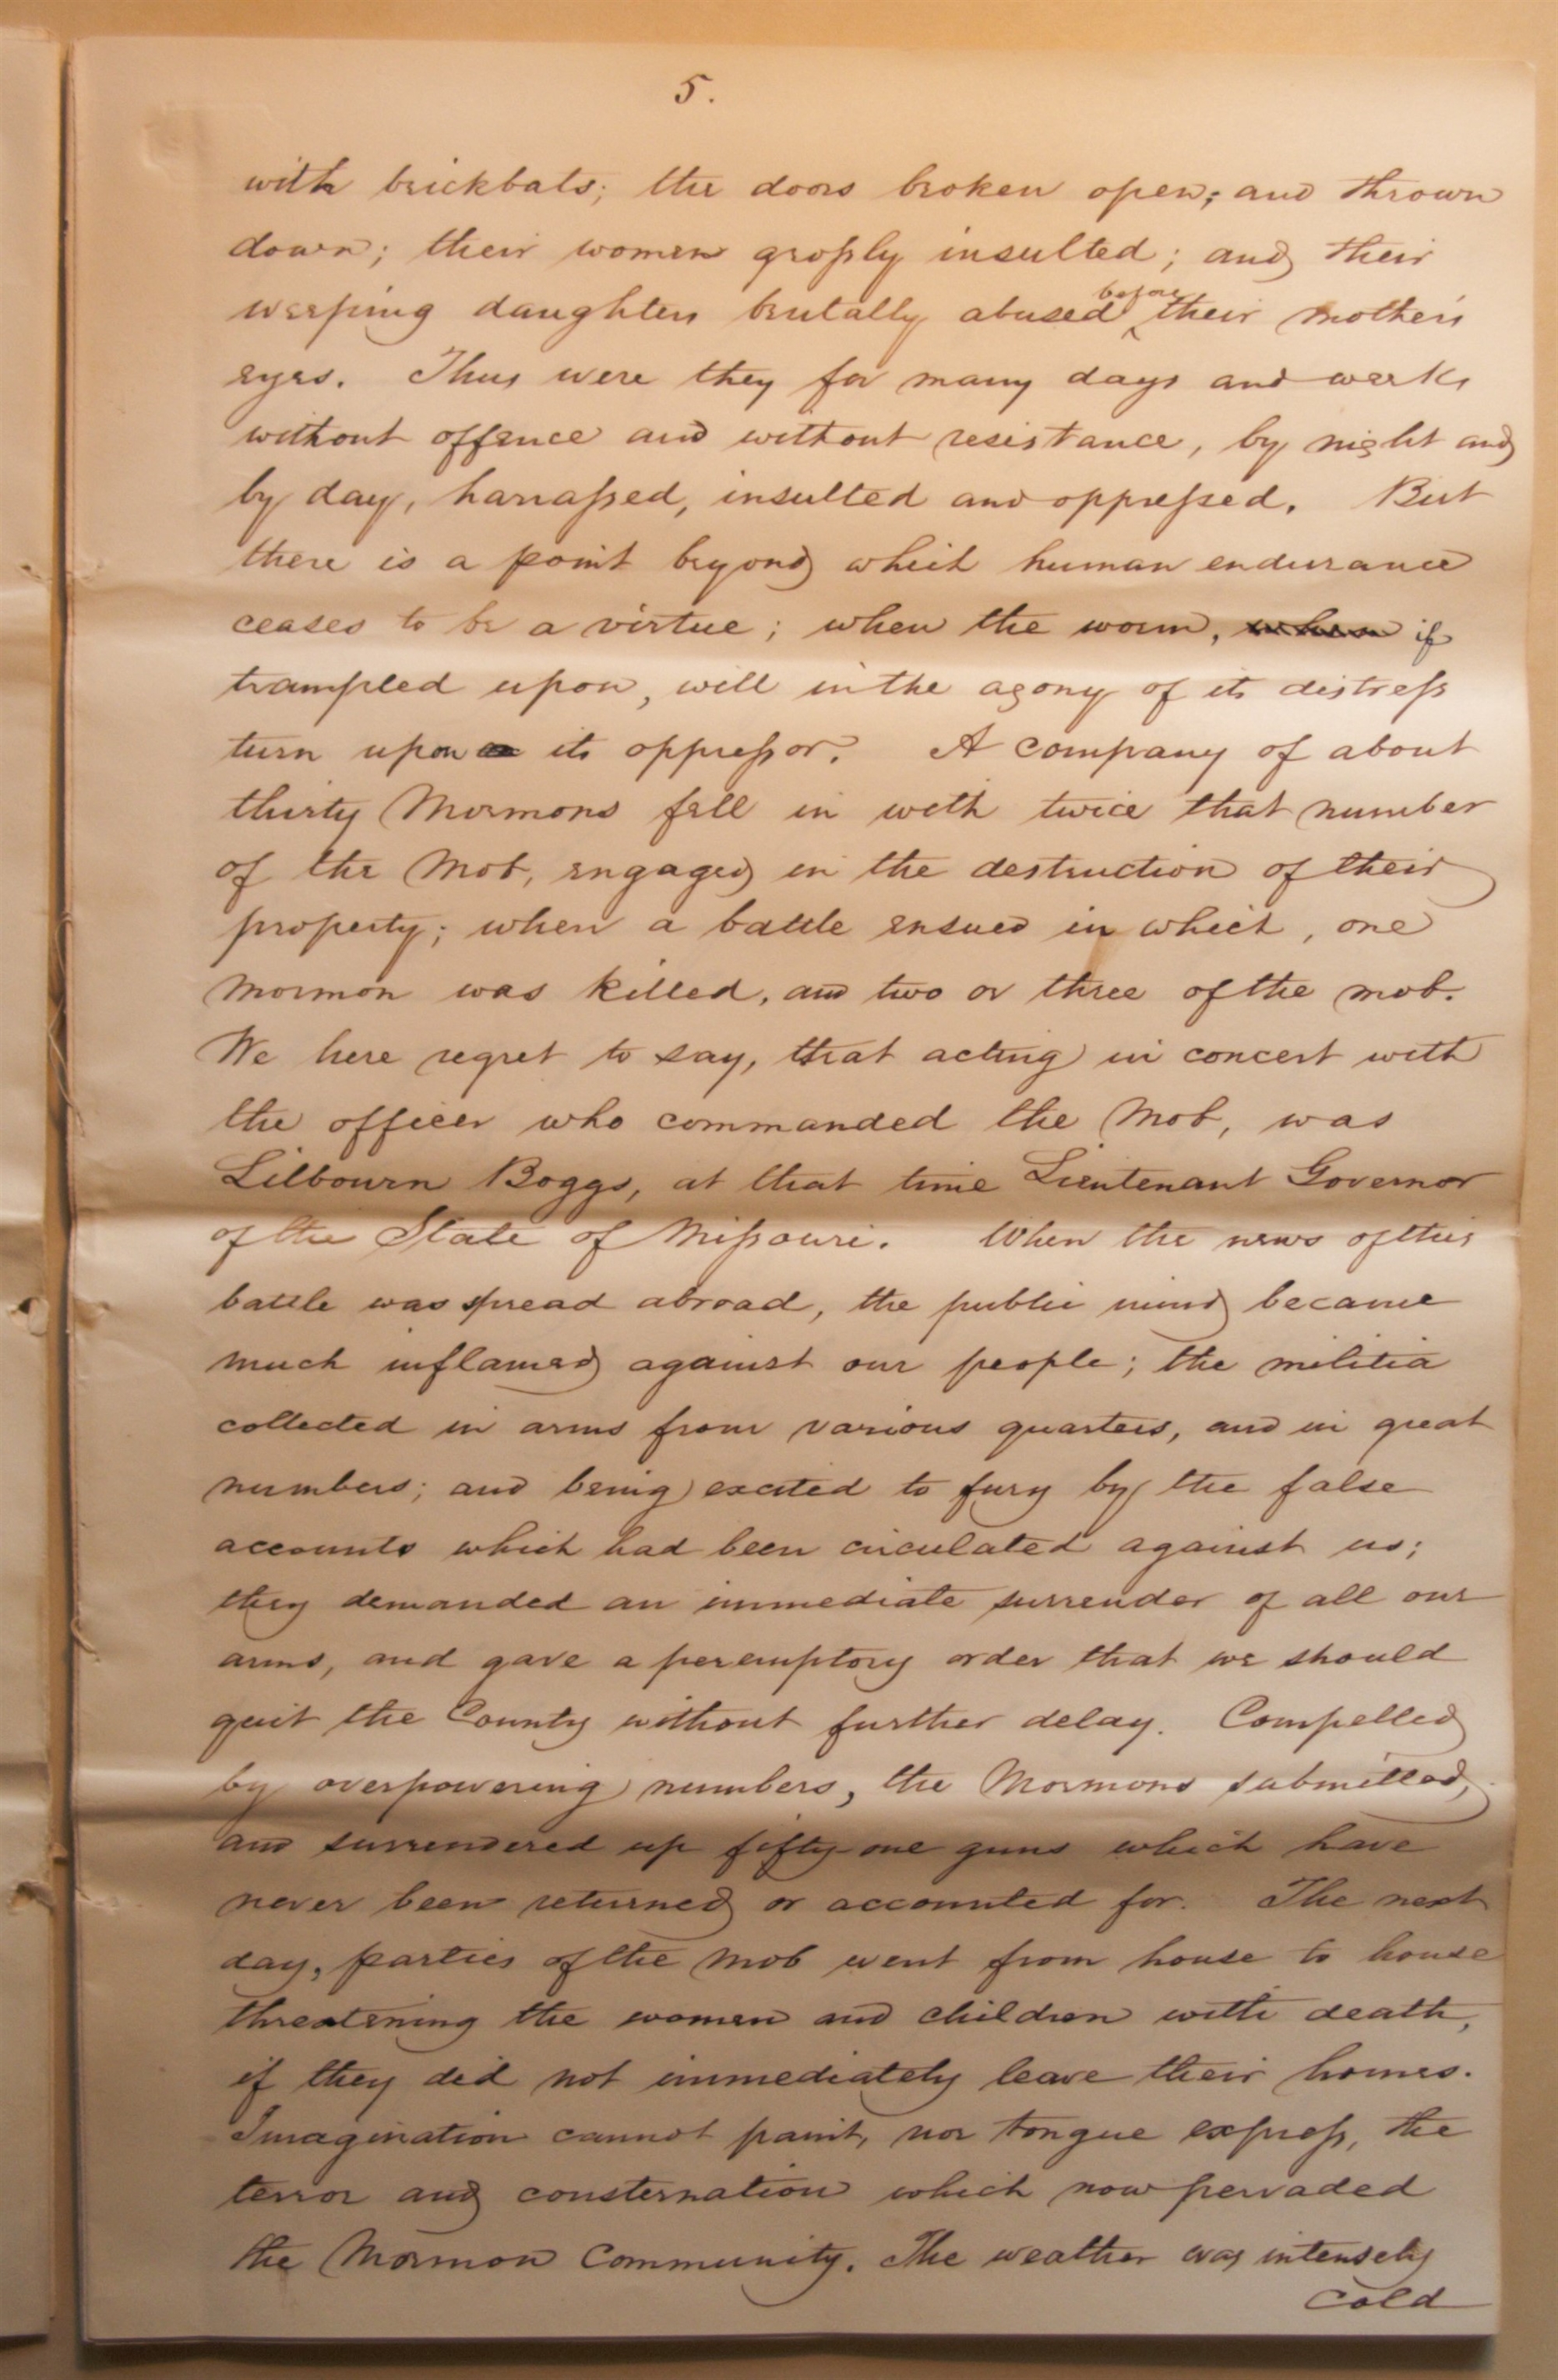 5.
with brickbats; the doors broken open; and thrown
down; their women grossly insulted; and their
before
weeping daughters brutally abused ‸ their mother's
eyes. Thus were they for many days and weeks
without offence and without resistance, by night and
by day, harrassed, insulted and oppressed. But
there is a point beyond which human endurance
ceases to be a virtue; when the worm, when if
trampled upon, will in the agony of its distress
turn upon its oppressor. A company of about
thirty Mormons fell in with twice that number
of the Mob, engaged in the destruction of their
property; when a battle ensued in which, one
Mormon was killed, and two or three of the mob.
We here regret to say, that acting in concert with
the officer who commanded the Mob, was
Lilbourn Boggs, at that time Lieutenant Governor
of the State of Missouri. When the news of this
battle was spread abroad, the public mind became
much inflamed against our people; the militia
collected in arms from various quarters, and in great
numbers; and being excited to fury by the false
accounts which had been circulated against us;
they demanded an immediate surrender of all our
arms, and gave a peremptory order that we should
quit the County without further delay. Compelled
by overpowering numbers, the Mormons submitted,
and surrendered up fifty-one guns which have
never been returned or accounted for. The next
day, parties of the mob went from house to house
threatening the women and children with death,
if they did not immediately leave their homes.
Imagination cannot paint, nor tongue express, the
terror and consternation which now pervaded
the Mormon Community. The weather was intensely
cold